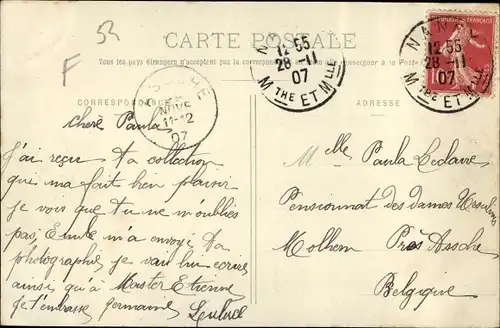 52
F
CARTE POSTALE
Tous les pays étrangers n'acceptent pas la correspondance
se renseigner à la Poste
CORRESPONDANCE
ADRESSE
NANCY
12 55
28 -11
07
Mthe ET Mlle
NANCY
12 55
28 -11
07
Mthe ET Mlle
NOVE
11-12
07
chère Paula
J'ai reçu ta collection
qui m'a fait bien plaisir
je vois que tu ne m'oublies
pas, Emile m'a envoyé ta
photographie je vais lui écrire
ainsi, qu'à Master Etienne
je t'embrasse Germaine
Melle Paula Leclaire
Pensionnat des dames Ursulines
Molhem Près Assche
Belgique